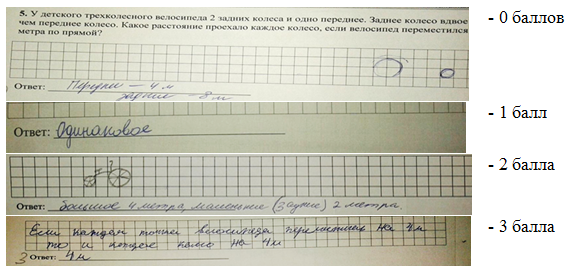 5. У детского трехколесного велосипеда 2 задних колеса и одно переднее. Заднее колесо вдвое
чем переднее колесо. Какое расстояние проехало каждое колесо, если велосипед переместился
метра по прямой?
- 0 баллов
Ответ: Переднее — 4 м
задние — 8 м
Ответ: Одинаковое
- 1 балл
- 2 балла
Ответ: большое 4 метра, маленькие (задние) 2 метра.
- 3 балла
Если каждая точка велосипеда переместилась на 4м
то и колесо на 4м
3 Ответ: 4м